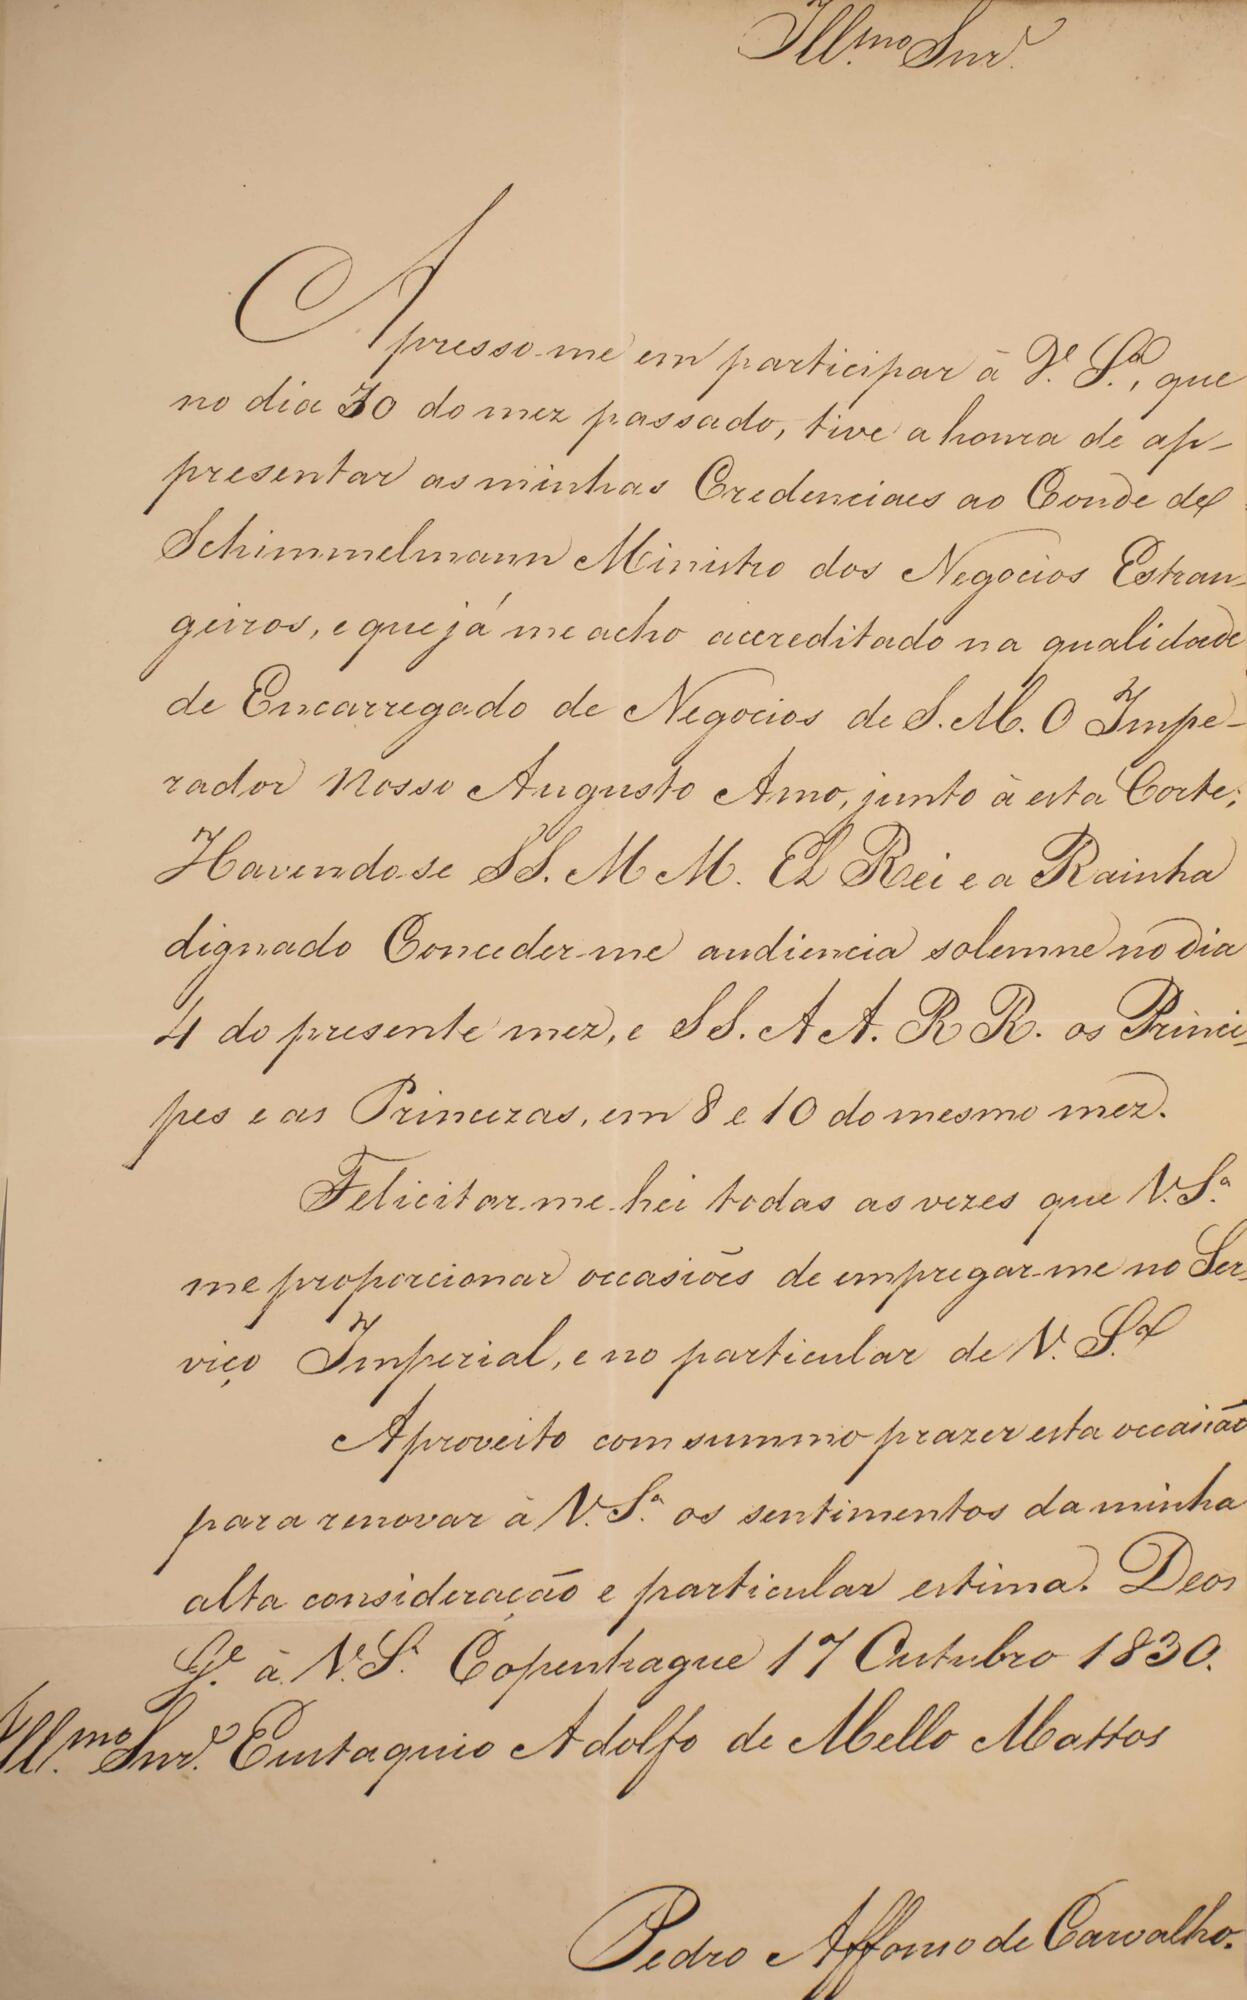 Ill.mo Snr.
Apresso-me em participar à V. S.a, que
no dia 30 do mez passado, tive a honra de ap-
presentar as minhas Credenciaes ao Conde de
Schimmelmann Ministro dos Negocios Estran-
geiros, e que já me acho accreditado na qualidade
de Encarregado de Negocios de S. M. O Impe-
rador Nosso Augusto Amo, junto à esta Corte;
Havendo-se SS. M M. El Rei e a Rainha
dignado Conceder-me audiencia solemne no dia
4 do presente mez, e SS. A A. R R. os Princi-
pes e as Princezas, em 8 e 10 do mesmo mez.
Felicitar-me-hei todas as vezes que V. S.a
me proporcionar occasiões de empregar-me no Ser-
viço Imperial, e no particular de V. S.a
Aproveito com summo prazer esta occasião
para renovar à V. S.a os sentimentos da minha
alta consideração e particular estima. Deos
G.e à V. S.a Copenhague 17 Outubro 1830.
Ill.mo Snr. Eustaquio Adolfo de Mello Mattos
Pedro Affonso de Carvalho.